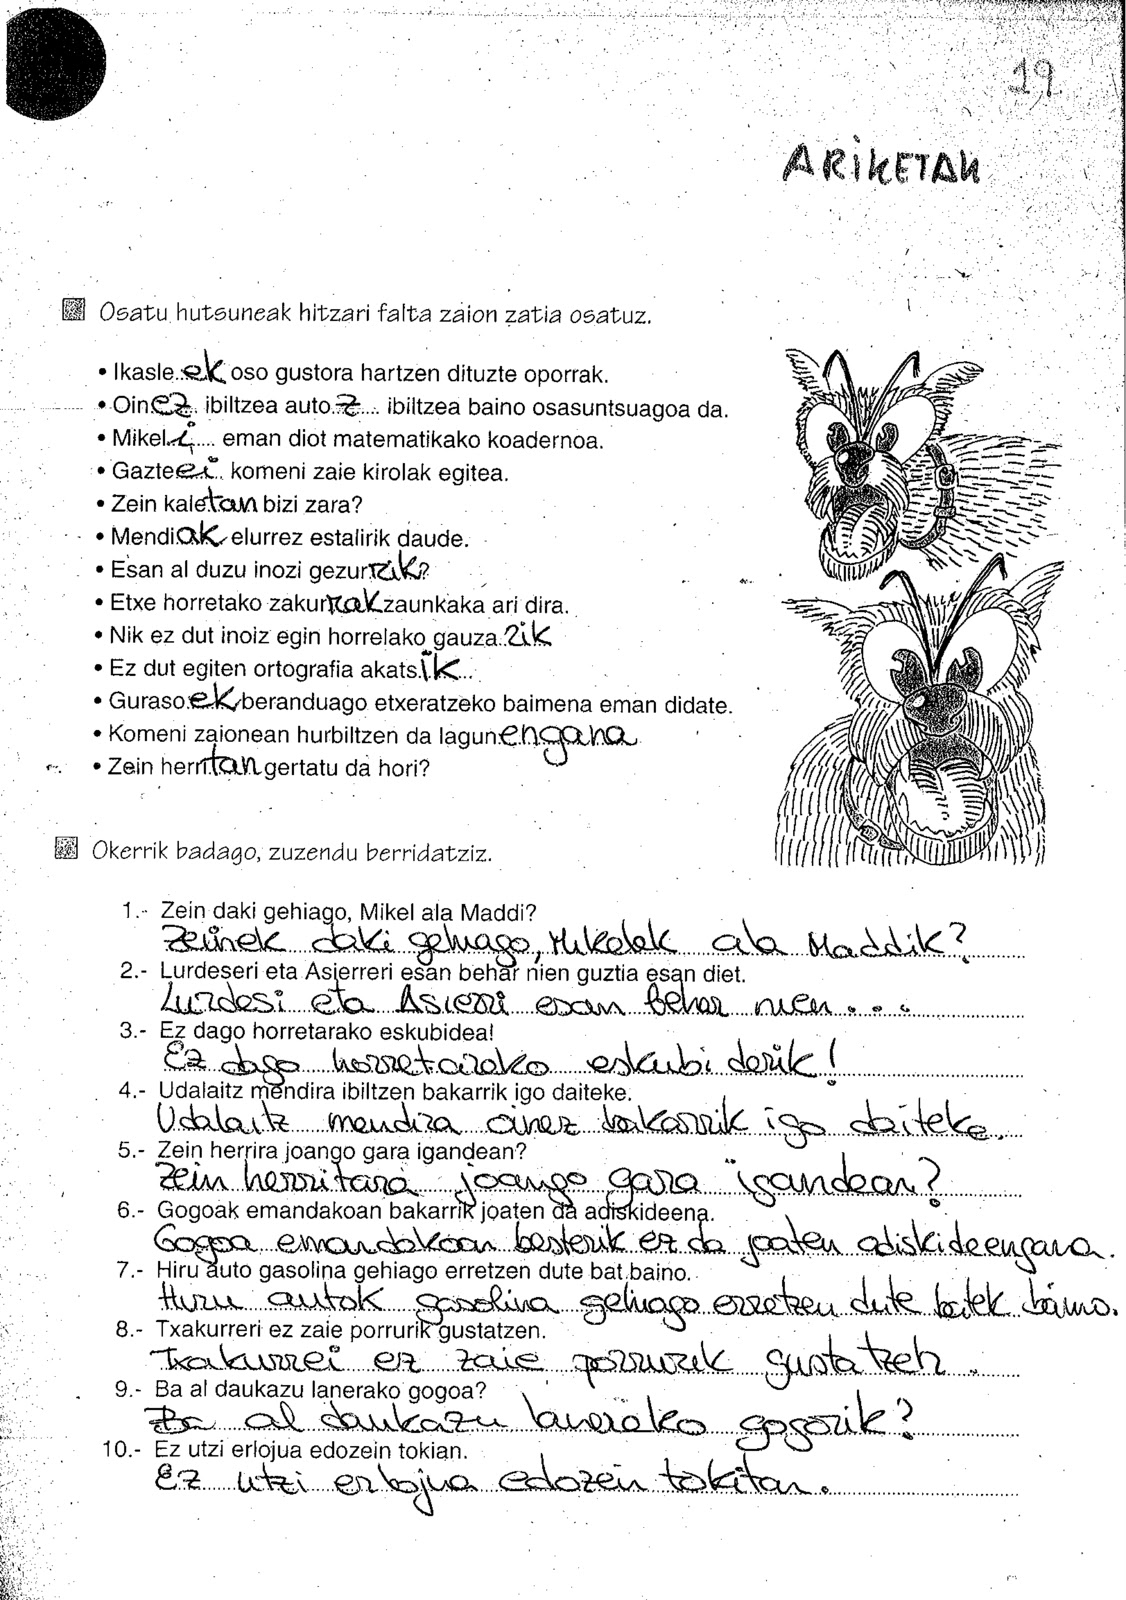 19
ARIKETAK
Osatu hutsuneak hitzari falta zaion zatia osatuz.
• Ikasle..ek oso gustora hartzen dituzte oporrak.
• Oinez. ibiltzea auto.z... ibiltzea baino osasuntsuagoa da.
• Mikel.i.... eman diot matematikako koadernoa.
• Gazteei.. komeni zaie kirolak egitea.
• Zein kaletan bizi zara?
• Mendiak elurrez estalirik daude.
• Esan al duzu inozi gezurrik?
• Etxe horretako zakurrak zaunkaka ari dira.
• Nik ez dut inoiz egin horrelako gauza.rik
• Ez dut egiten ortografia akats.ik...
• Guraso.ek beranduago etxeratzeko baimena eman didate.
• Komeni zaionean hurbiltzen da lagunengana
• Zein herritan gertatu da hori?
Okerrik badago, zuzendu berridatziz.
1.- Zein daki gehiago, Mikel ala Maddi?
Zeinek daki gehiago, Mikelek ala Maddik?
2.- Lurdeseri eta Asierreri esan behar nien guztia esan diet.
Lurdesi eta Asierri esan behar nien . . .
3.- Ez dago horretarako eskubidea!
Ez dago horretarako eskubiderik!
4.- Udalaitz mendira ibiltzen bakarrik igo daiteke.
Udalaitz mendira oinez bakarrik igo daiteke.
5.- Zein herrira joango gara igandean?
Zein herritara joango gara igandean?
6.- Gogoak emandakoan bakarrik joaten da adiskideena.
Gogoa emandakoan besterik ez da joaten adiskideengana.
7.- Hiru auto gasolina gehiago erretzen dute bat baino.
Hiru autok gasolina gehiago erretzen dute batek baino.
8.- Txakurreri ez zaie porrurik gustatzen.
Txakurrei ez zaie porrurik gustatzen.
9.- Ba al daukazu lanerako gogoa?
Ba al daukazu lanerako gogorik?
10.- Ez utzi erlojua edozein tokian.
Ez utzi erlojua edozein tokitan.